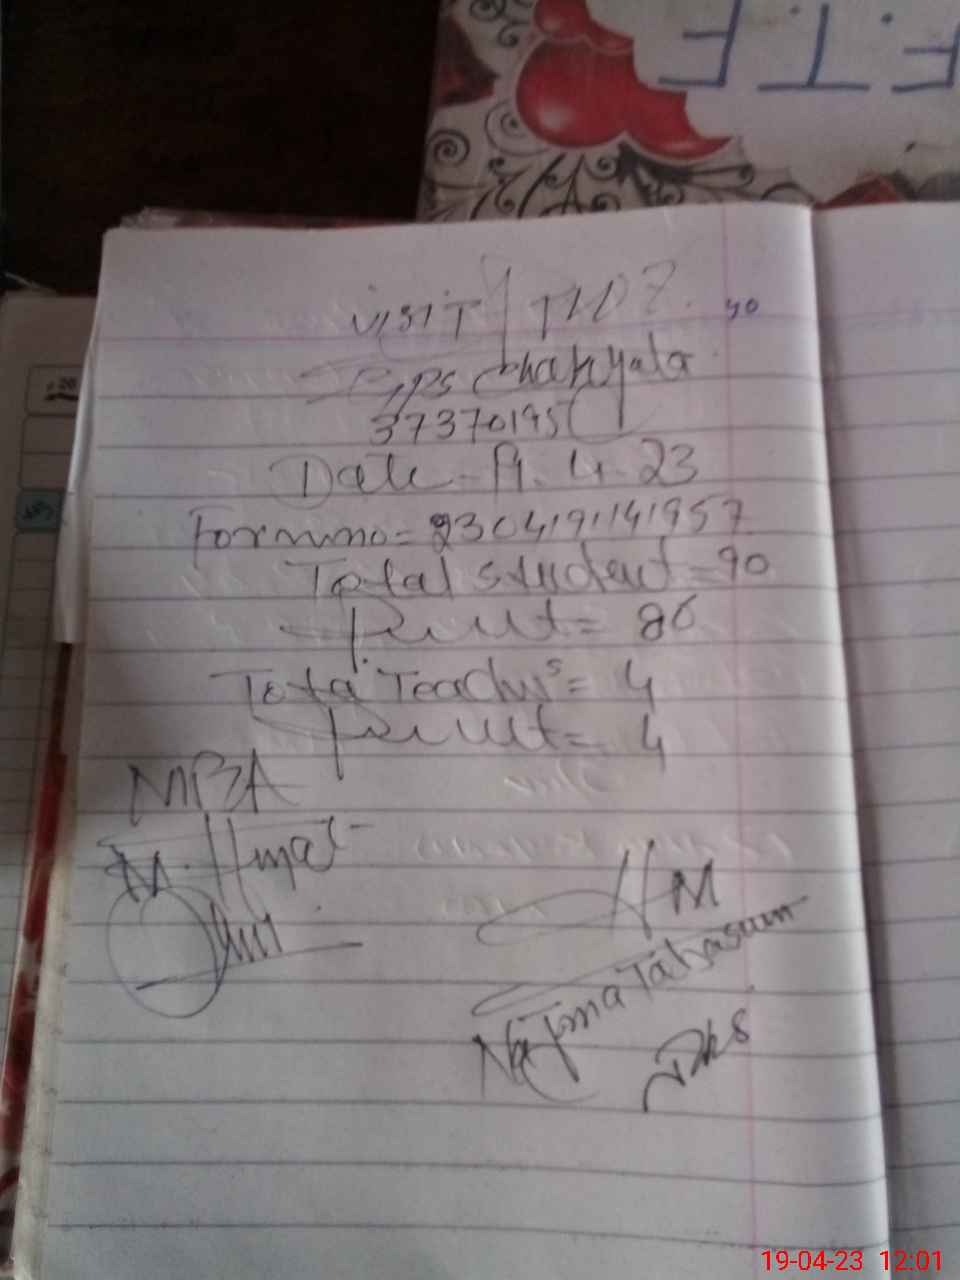 F.T.F
VISIT
40
GPS Chakyala
37370195
Date - 19.4.23
Form no = 2304191141957
Total student = 90
Present = 86
Total Teachers = 4
Present = 4
MBA
M.
HM
Najma Tabasum
19-04-23 12:01